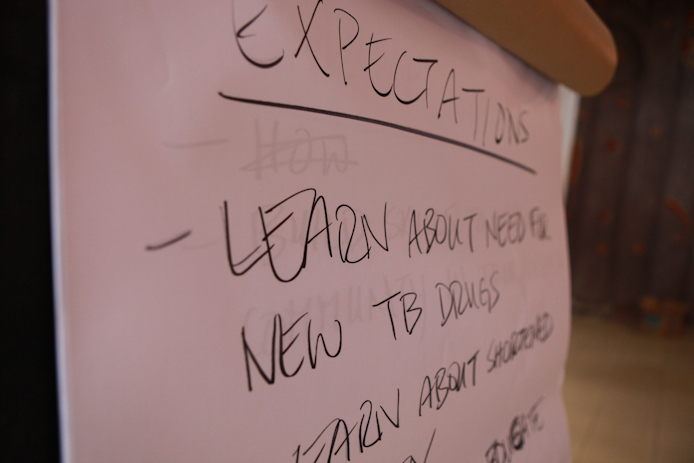 EXPECTATIONS
- HOW
- LEARN ABOUT NEED FOR
NEW TB DRUGS
LEARN ABOUT SHORTENED